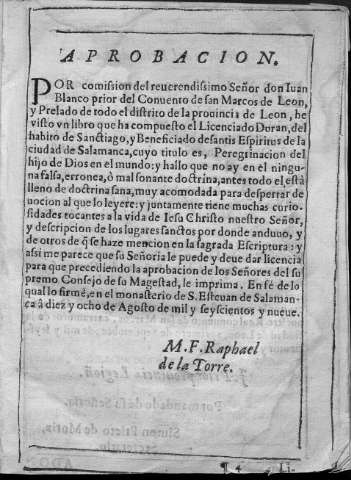 APROBACION.
POR comision del reuerendisimo Señor don Iuan
Blanco prior del Conuento de san Marcos de Leon,
y Prelado de todo el distrito de la prouincia de Leon, he
visto vn libro que ha compuesto el Licenciado Duran, del
habito de Sanctiago, y Beneficiado de santis Espiritus de la
ciudad de Salamanca, cuyo titulo es, Peregrinacion del
hijo de Dios en el mundo: y hallo que no ay en el ningu-
na falsa, erronea, ò mal sonante doctrina, antes todo el està
lleno de doctrina sana, muy acomodada para despertar de
uocion al que lo leyere: y juntamente tiene muchas curio-
sidades tocantes a la vida de Iesu Christo nuestro Señor,
y descripcion de los lugares sanctos por donde anduuo, y
de otros de q̃ se haze mencion en la sagrada Escriptura: y
assi me parece que su Señoria le puede y deue dar licencia
para que precediendo la aprobacion de los Señores del su
premo Consejo de su Magestad, le imprima. En fé de lo
qual lo firmè, en el monasterio de S. Esteuan de Salaman-
ca à diez y ocho de Agosto de mil y seyscientos y nueue.
M. F. Raphael
de la Torre.
¶ 4 Li-